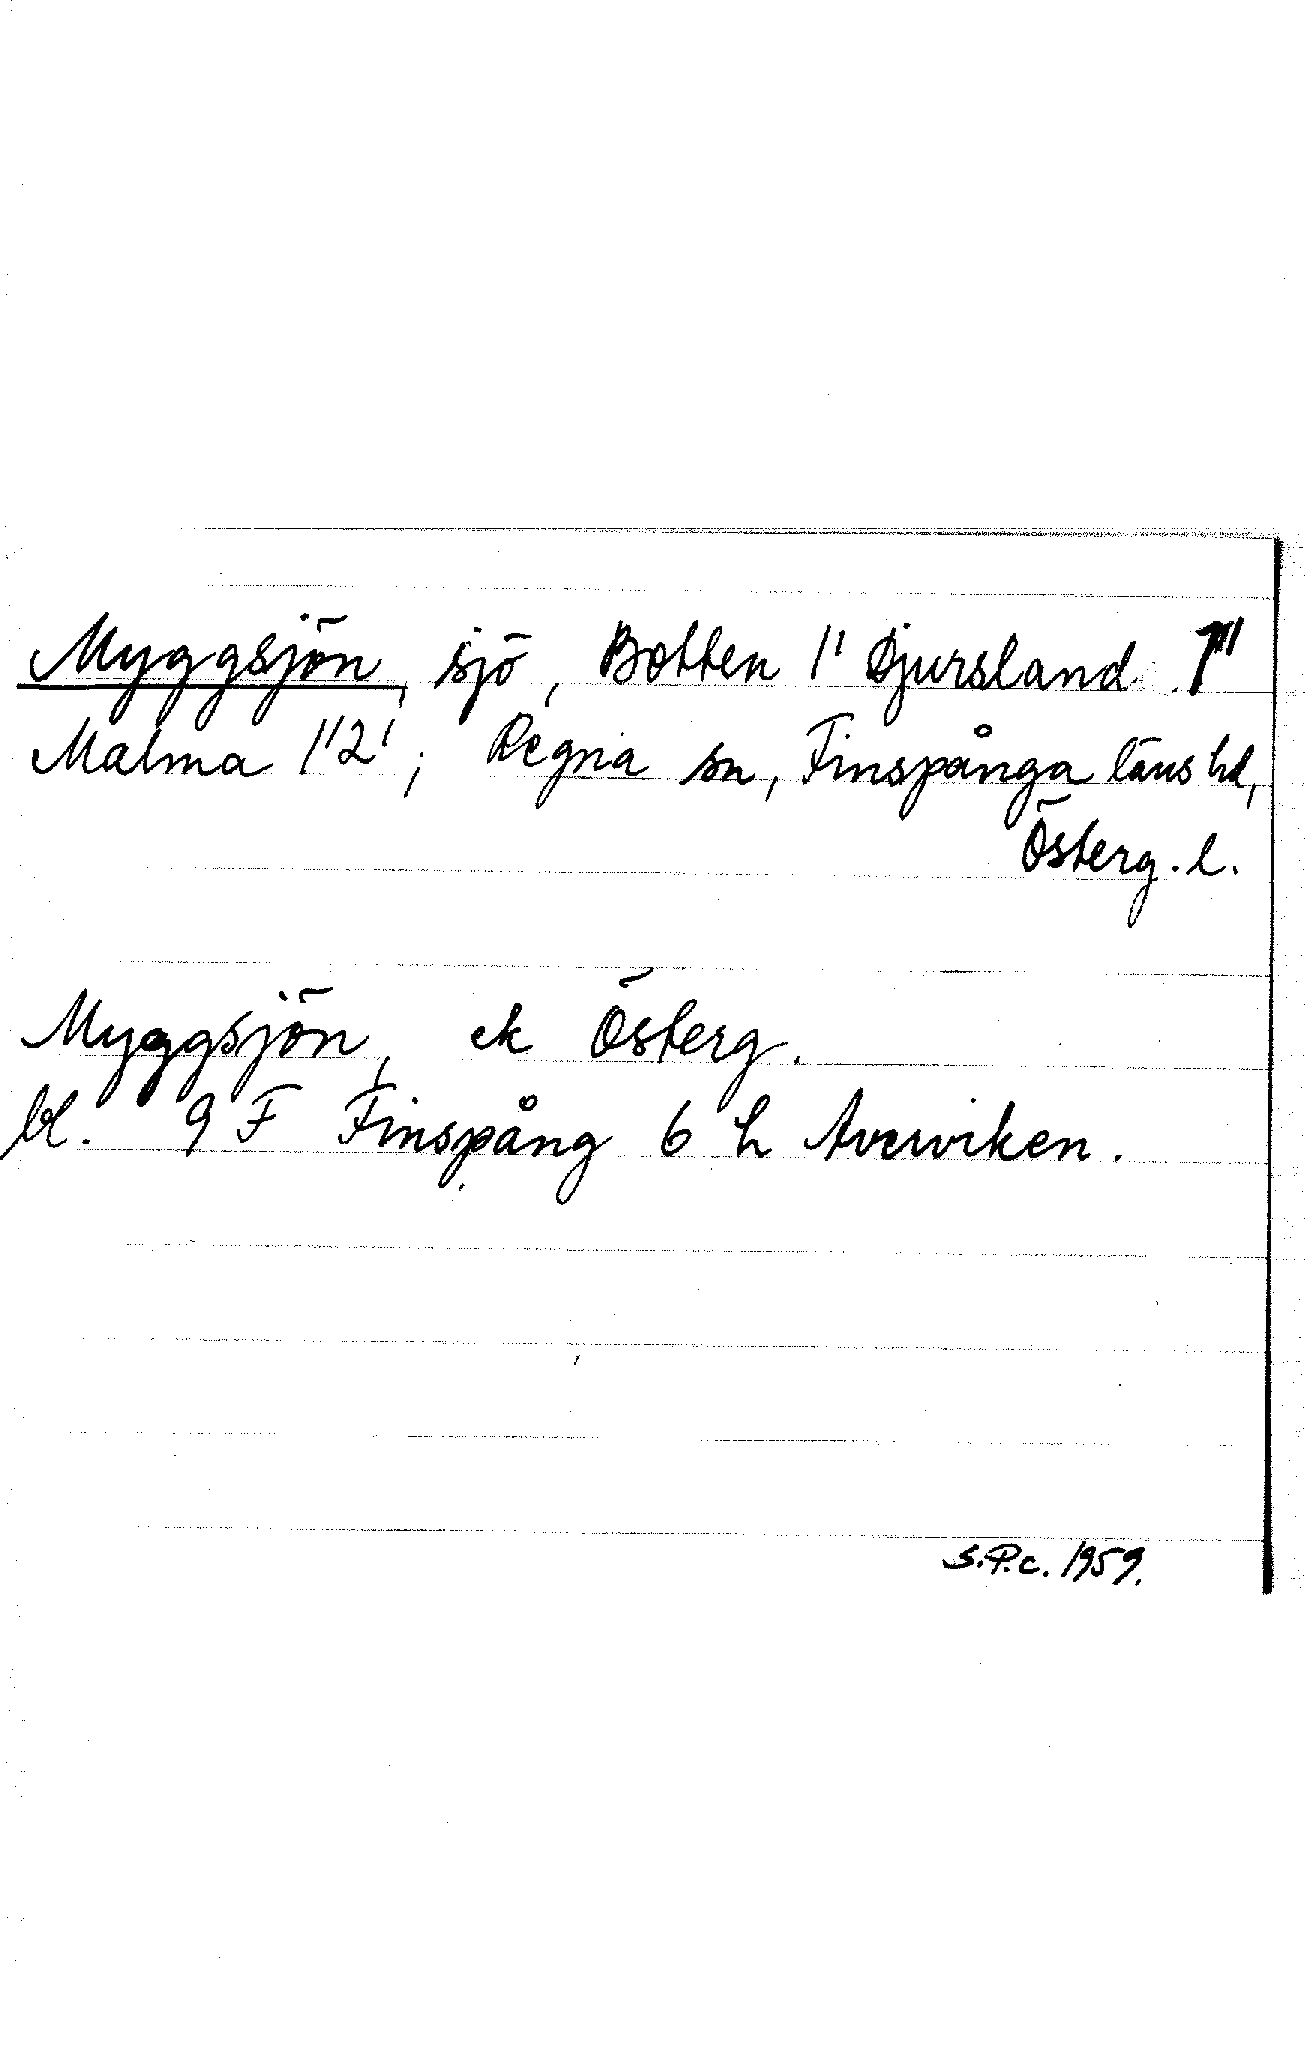 Myggsjön, sjö, Botten 1' Djursland 1"
Malma 1'2'; Regna sn, Finspånga läns hd,
Österg. l.
Myggsjön, ek Österg.
bl. 9 F Finspång 6 h Averviken.
S.P.c. 1959.